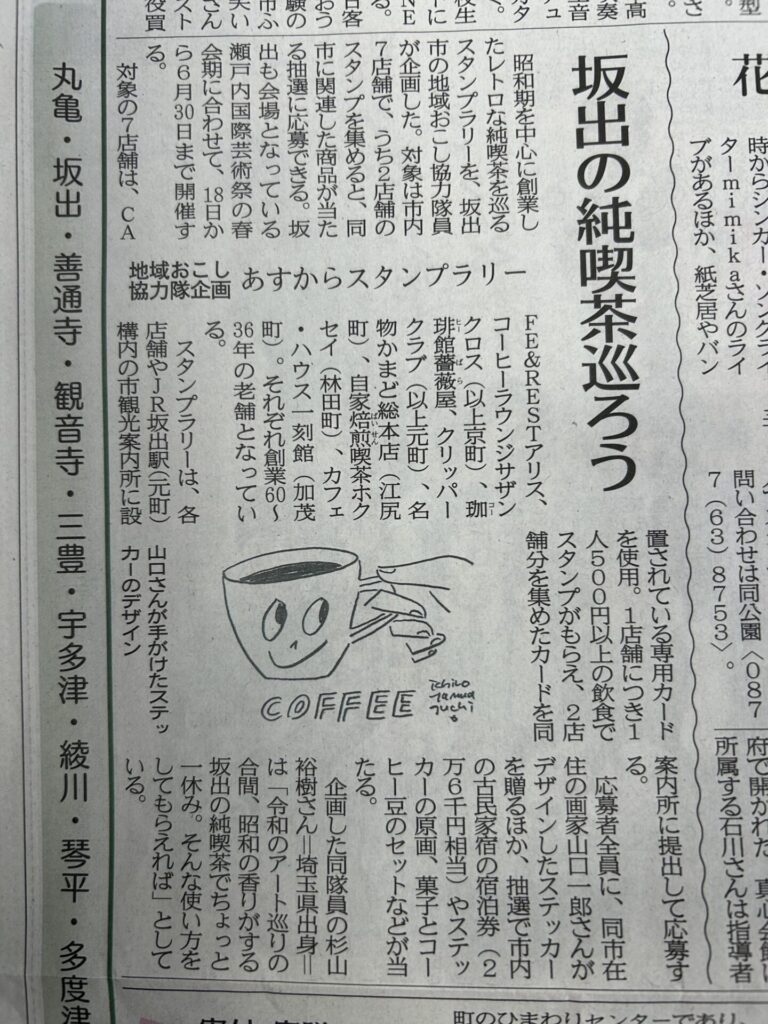 坂出の純喫茶巡ろう
地域おこし
協力隊企画
あすからスタンプラリー
昭和期を中心に創業し
たレトロな純喫茶を巡る
スタンプラリーを、坂出
市の地域おこし協力隊員
が企画した。対象は市内
7店舗で、うち2店舗の
スタンプを集めると、同
市に関連した商品が当た
る抽選に応募できる。坂
出も会場となっている
瀬戸内国際芸術祭の春
会期に合わせて、18日か
ら6月30日まで開催す
る。
対象の7店舗は、CA
FE&RESTアリス、
コーヒーラウンジサザン
クロス(以上京町)、珈
琲館薔薇屋、クリッパー
クラブ(以上元町)、名
物かまど総本店(江尻
町)、自家焙煎喫茶ホク
セイ(林田町)、カフェ
・ハウス一刻館(加茂
町)。それぞれ創業60〜
36年の老舗となってい
る。
スタンプラリーは、各
店舗やJR坂出駅(元町)
構内の市観光案内所に設
置されている専用カード
を使用。1店舗につき1
人500円以上の飲食で
スタンプがもらえ、2店
舗分を集めたカードを同
案内所に提出して応募す
る。
応募者全員に、同市在
住の画家山口一郎さんが
デザインしたステッカー
を贈るほか、抽選で市内
の古民家宿の宿泊券(2
万6千円相当)やステッ
カーの原画、菓子とコー
ヒー豆のセットなどが当
たる。
企画した同隊員の杉山
裕樹さん=埼玉県出身=
は「令和のアート巡りの
合間、昭和の香りがする
坂出の純喫茶でちょっと
一休み。そんな使い方を
してもらえれば」として
いる。
COFFEE
ichiro
yamaguchi
山口さんが手がけたステッ
カーのデザイン
丸亀・坂出・善通寺・観音寺・三豊・宇多津・綾川・琴平・多度津
花
時からシンガー・ソングライ
ターmimikaさんのライ
ブがあるほか、紙芝居やバン
問い合わせは同公園〈087
7(63)8753〉。
所属する石川さんは指導者
町のひまわりセンターであり、